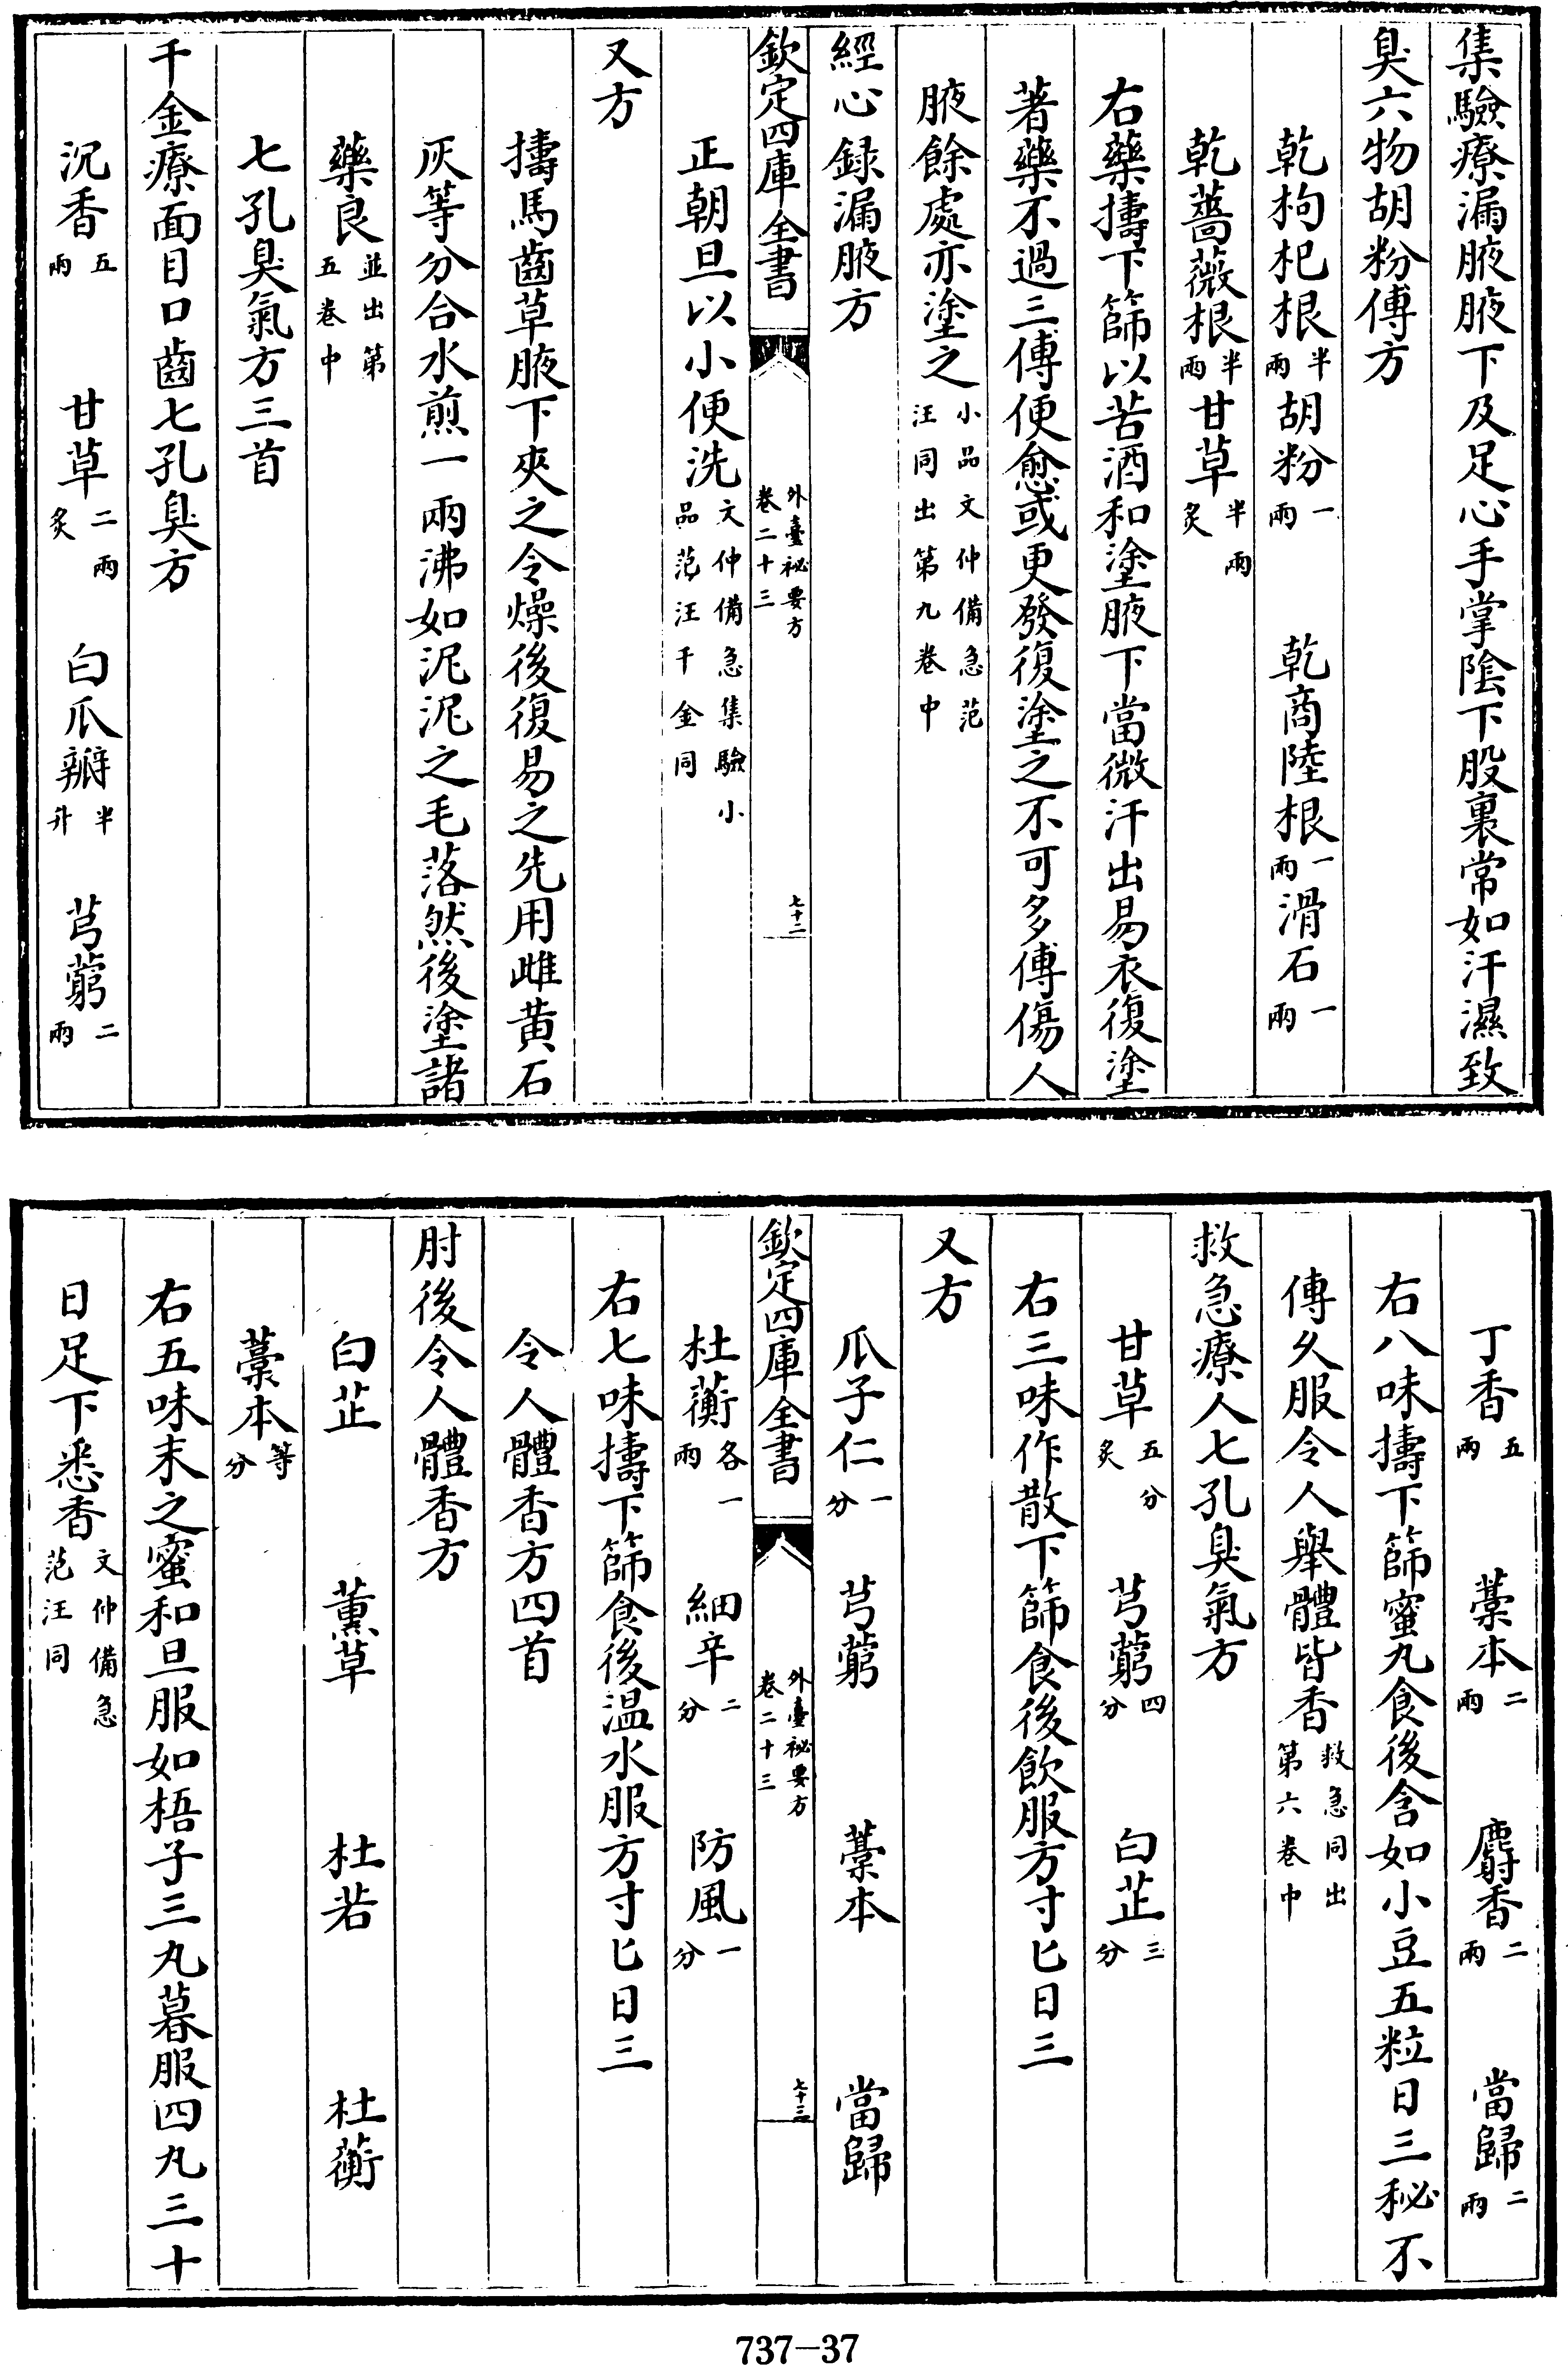 集驗療漏腋腋下及足心手掌陰下股裏常如汗濕致
臭六物胡粉傅方
乾枸杞根半兩 胡粉一兩 乾商陸根一兩 滑石一兩
乾薔薇根半兩 甘草半兩炙
右藥擣下篩以苦酒和塗腋下當微汗出易衣復塗
著藥不過三傅便愈或更發復塗之不可多傅傷人
腋餘處亦塗之小品文仲備急范汪同出第九卷中
經心録漏腋方
欽定四庫全書 外臺祕要方卷二十三 七十二
正朝旦以小便洗文仲備急集驗小品范汪千金同
又方
擣馬齒草腋下夾之令燥後復易之先用雌黄石
灰等分合水煎一兩沸如泥泥之毛落然後塗諸
藥良並出第五卷中
七孔臭氣方三首
千金療面目口齒七孔臭方
沉香五兩 甘草二兩炙 白瓜瓣半升 芎藭二兩
丁香五兩 藁本二兩 麝香二兩 當歸二兩
右八味擣下篩蜜丸食後含如小豆五粒日三秘不
傳久服令人舉體皆香救急同出第六卷中
救急療人七孔臭氣方
甘草五分炙 芎藭四分 白芷三分
右三味作散下篩食後飲服方寸匕日三
又方
瓜子仁一分 芎藭 藁本 當歸
欽定四庫全書 外臺祕要方卷二十三 七十三
杜蘅各一兩 細辛二分 防風一分
右七味擣下篩食後温水服方寸匕日三
令人體香方四首
肘後令人體香方
白芷 薰草 杜若 杜蘅
藁本等分
右五味末之蜜和旦服如梧子三丸暮服四丸三十
日足下悉香文仲備急范汪同
737-37